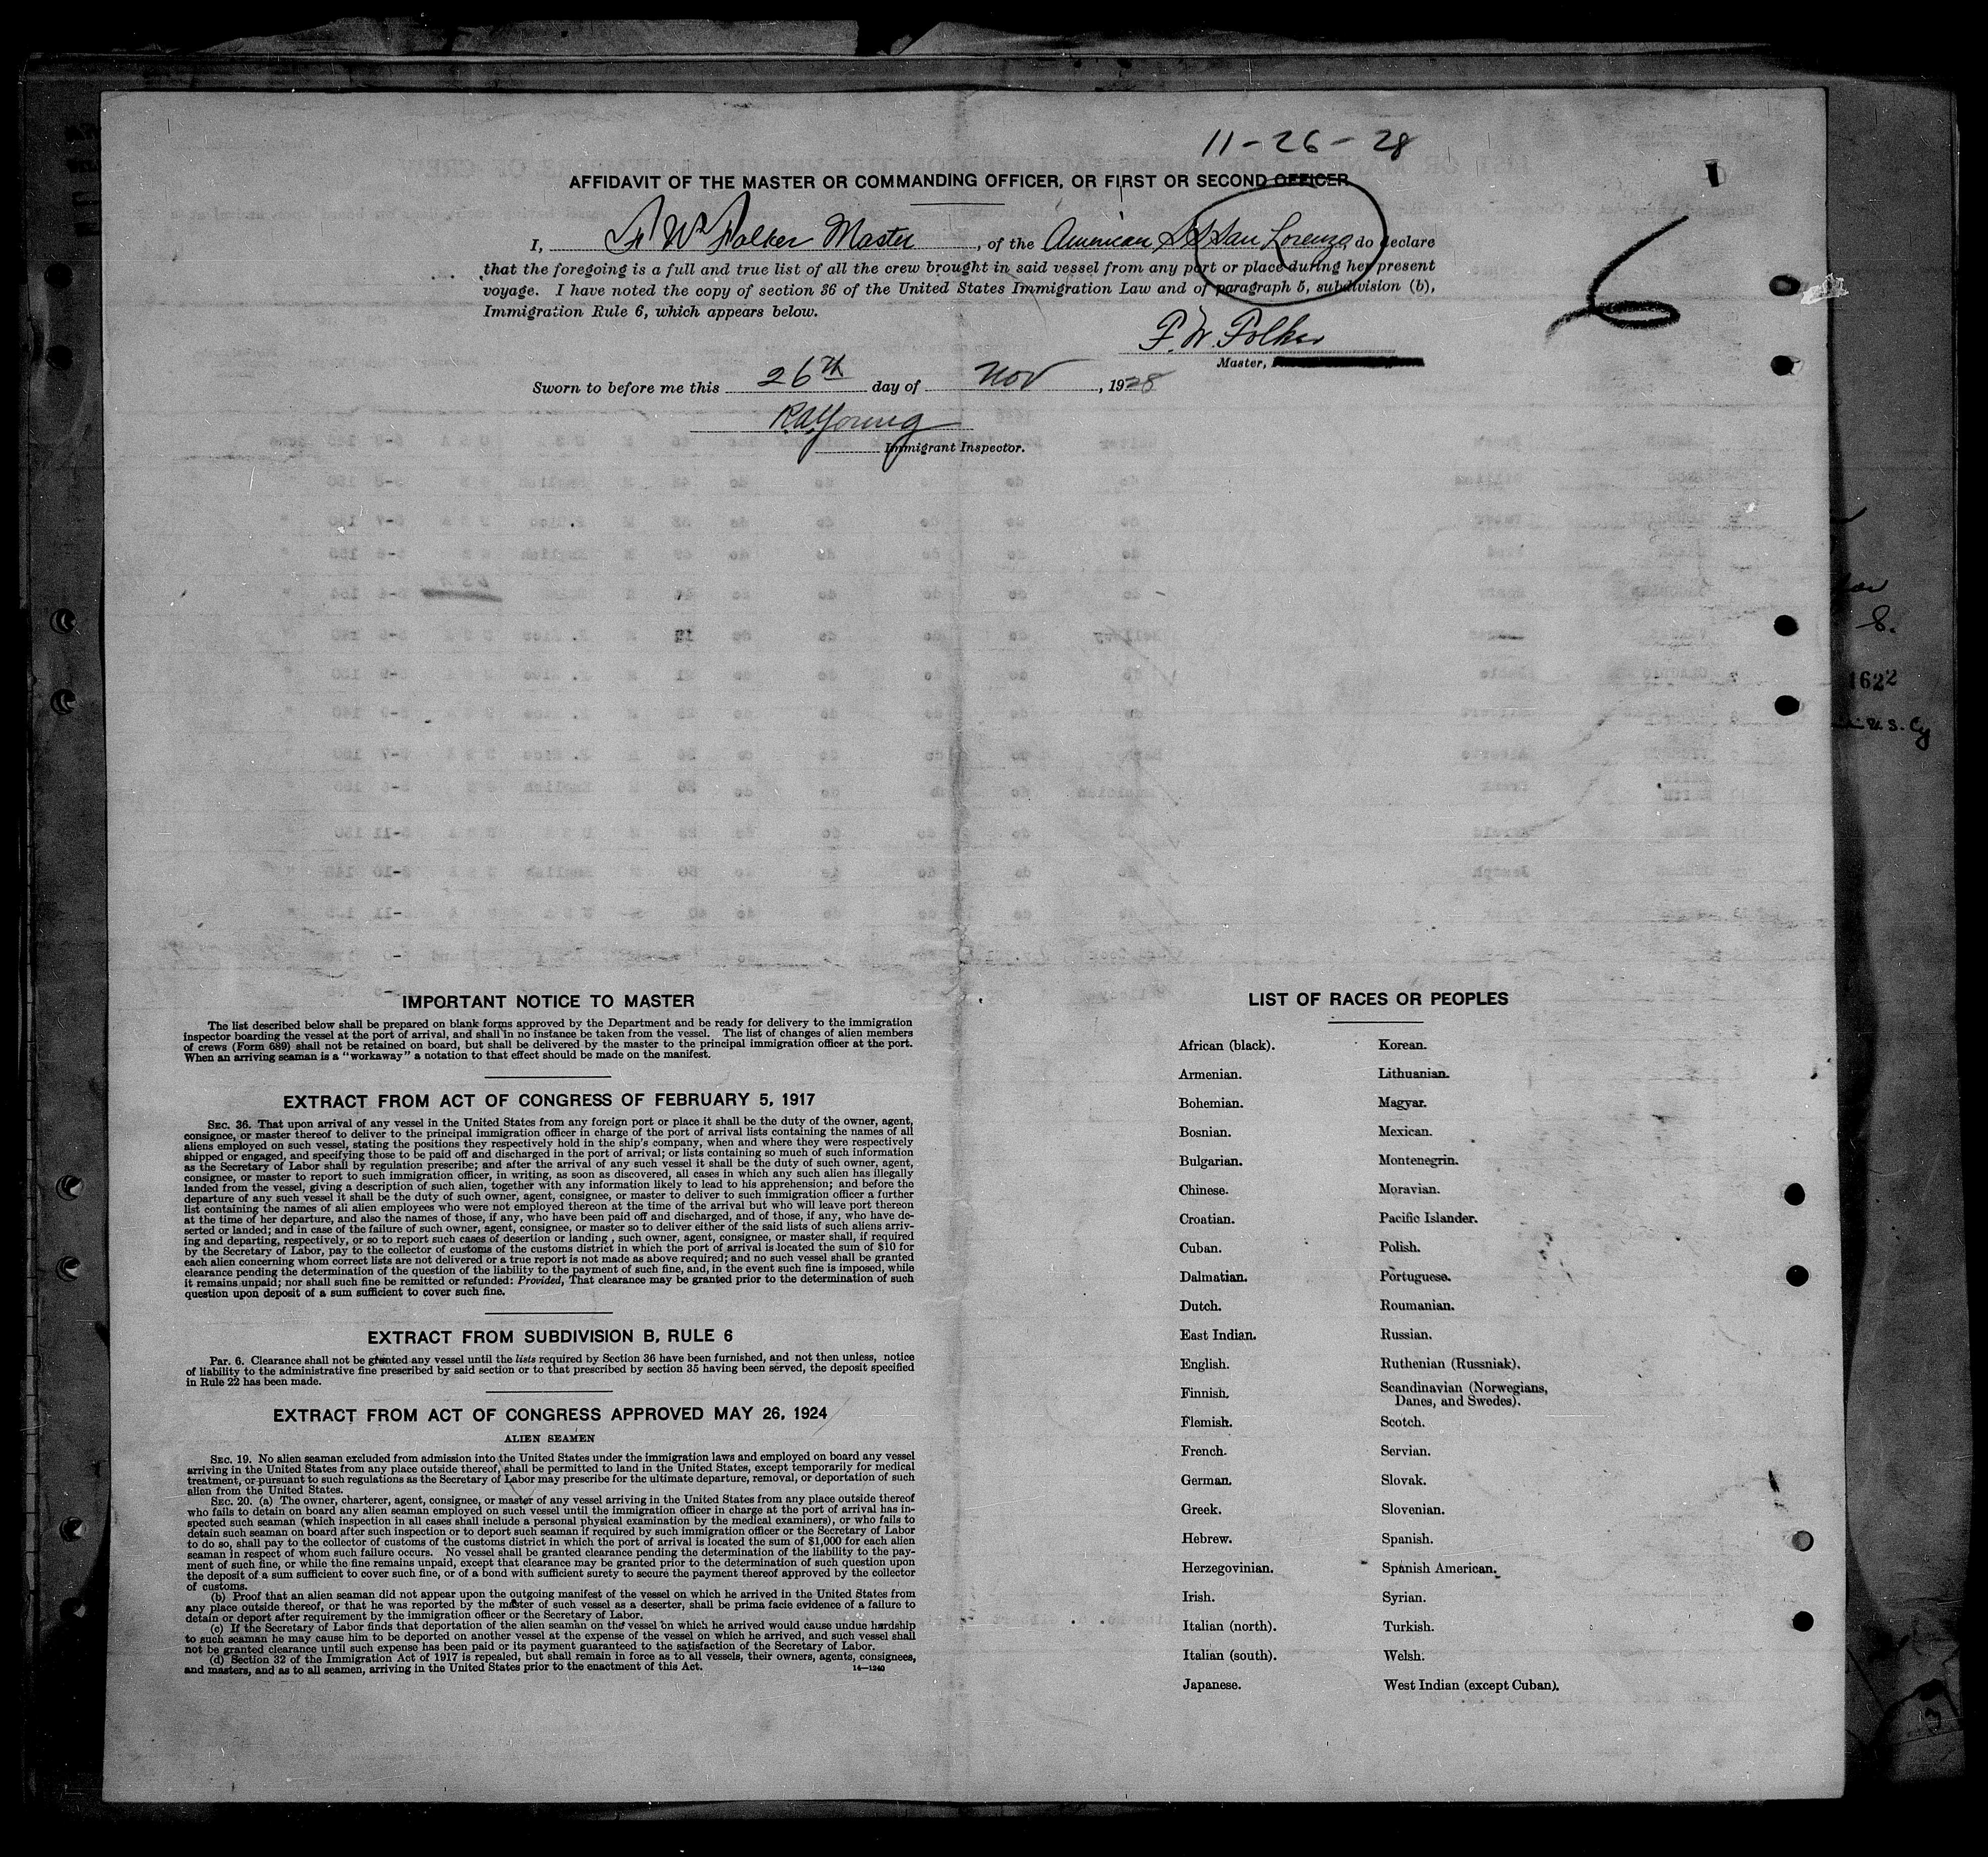 11-26-28
AFFIDAVIT OF THE MASTER OR COMMANDING OFFICER, OR FIRST OR SECOND OFFICER
I, F. W. Folker Master, of the American SS San Lorenzo do declare
that the foregoing is a full and true list of all the crew brought in said vessel from any port or place during her present
voyage. I have noted the copy of section 36 of the United States Immigration Law and of paragraph 5, subdivision (b),
Immigration Rule 6, which appears below.
6
F. W. Folker
Master,
Sworn to before me this 26th day of Nov, 1928
R.A. Young
Immigrant Inspector.
IMPORTANT NOTICE TO MASTER
The list described below shall be prepared on blank forms approved by the Department and be ready for delivery to the immigration
inspector boarding the vessel at the port of arrival, and shall in no instance be taken from the vessel. The list of changes of alien members
of crews (Form 689) shall not be retained on board, but shall be delivered by the master to the principal immigration officer at the port.
When an arriving seaman is a "workaway" a notation to that effect should be made on the manifest.
EXTRACT FROM ACT OF CONGRESS OF FEBRUARY 5, 1917
SEC. 36. That upon arrival of any vessel in the United States from any foreign port or place it shall be the duty of the owner, agent,
consignee, or master thereof to deliver to the principal immigration officer in charge of the port of arrival lists containing the names of all
aliens employed on such vessel, stating the positions they respectively hold in the ship's company, when and where they were respectively
shipped or engaged, and specifying those to be paid off and discharged in the port of arrival; or lists containing so much of such information
as the Secretary of Labor shall by regulation prescribe; and after the arrival of any such vessel it shall be the duty of such owner, agent,
consignee, or master to report to such immigration officer, in writing, as soon as discovered, all cases in which any such alien has illegally
landed from the vessel, giving a description of such alien, together with any information likely to lead to his apprehension; and before the
departure of any such vessel it shall be the duty of such owner, agent, consignee, or master to deliver to such immigration officer a further
list containing the names of all alien employees who were not employed thereon at the time of the arrival but who will leave port thereon
at the time of her departure, and also the names of those, if any, who have been paid off and discharged, and of those, if any, who have de-
serted or landed; and in case of the failure of such owner, agent, consignee, or master so to deliver either of the said lists of such aliens arriv-
ing and departing, respectively, or so to report such cases of desertion or landing, such owner, agent, consignee, or master shall, if required
by the Secretary of Labor, pay to the collector of customs of the customs district in which the port of arrival is located the sum of $10 for
each alien concerning whom correct lists are not delivered or a true report is not made as above required; and no such vessel shall be granted
clearance pending the determination of the question of the liability to the payment of such fine, and, in the event such fine is imposed, while
it remains unpaid; nor shall such fine be remitted or refunded: Provided, That clearance may be granted prior to the determination of such
question upon deposit of a sum sufficient to cover such fine.
EXTRACT FROM SUBDIVISION B, RULE 6
Par. 6. Clearance shall not be granted any vessel until the lists required by Section 36 have been furnished, and not then unless, notice
of liability to the administrative fine prescribed by said section or to that prescribed by section 35 having been served, the deposit specified
in Rule 22 has been made.
EXTRACT FROM ACT OF CONGRESS APPROVED MAY 26, 1924
ALIEN SEAMEN
SEC. 19. No alien seaman excluded from admission into the United States under the immigration laws and employed on board any vessel
arriving in the United States from any place outside thereof, shall be permitted to land in the United States, except temporarily for medical
treatment, or pursuant to such regulations as the Secretary of Labor may prescribe for the ultimate departure, removal, or deportation of such
alien from the United States.
SEC. 20. (a) The owner, charterer, agent, consignee, or master of any vessel arriving in the United States from any place outside thereof
who fails to detain on board any alien seaman employed on such vessel until the immigration officer in charge at the port of arrival has in-
spected such seaman (which inspection in all cases shall include a personal physical examination by the medical examiners), or who fails to
detain such seaman on board after such inspection or to deport such seaman if required by such immigration officer or the Secretary of Labor
to do so, shall pay to the collector of customs of the customs district in which the port of arrival is located the sum of $1,000 for each alien
seaman in respect of whom such failure occurs. No vessel shall be granted clearance pending the determination of the liability to the pay-
ment of such fine, or while the fine remains unpaid, except that clearance may be granted prior to the determination of such question upon
the deposit of a sum sufficient to cover such fine, or of a bond with sufficient surety to secure the payment thereof approved by the collector
of customs.
(b) Proof that an alien seaman did not appear upon the outgoing manifest of the vessel on which he arrived in the United States from
any place outside thereof, or that he was reported by the master of such vessel as a deserter, shall be prima facie evidence of a failure to
detain or deport after requirement by the immigration officer or the Secretary of Labor.
(c) If the Secretary of Labor finds that deportation of the alien seaman on the vessel on which he arrived would cause undue hardship
to such seaman he may cause him to be deported on another vessel at the expense of the vessel on which he arrived, and such vessel shall
not be granted clearance until such expense has been paid or its payment guaranteed to the satisfaction of the Secretary of Labor.
(d) Section 32 of the Immigration Act of 1917 is repealed, but shall remain in force as to all vessels, their owners, agents, consignees,
and masters, and as to all seamen, arriving in the United States prior to the enactment of this Act.
14—1240
LIST OF RACES OR PEOPLES
African (black). Korean.
Armenian. Lithuanian.
Bohemian. Magyar.
Bosnian. Mexican.
Bulgarian. Montenegrin.
Chinese. Moravian.
Croatian. Pacific Islander.
Cuban. Polish.
Dalmatian. Portuguese.
Dutch. Roumanian.
East Indian. Russian.
English. Ruthenian (Russniak).
Finnish. Scandinavian (Norwegians,
Danes, and Swedes).
Flemish. Scotch.
French. Servian.
German. Slovak.
Greek. Slovenian.
Hebrew. Spanish.
Herzegovinian. Spanish American.
Irish. Syrian.
Italian (north). Turkish.
Italian (south). Welsh.
Japanese. West Indian (except Cuban).
1622